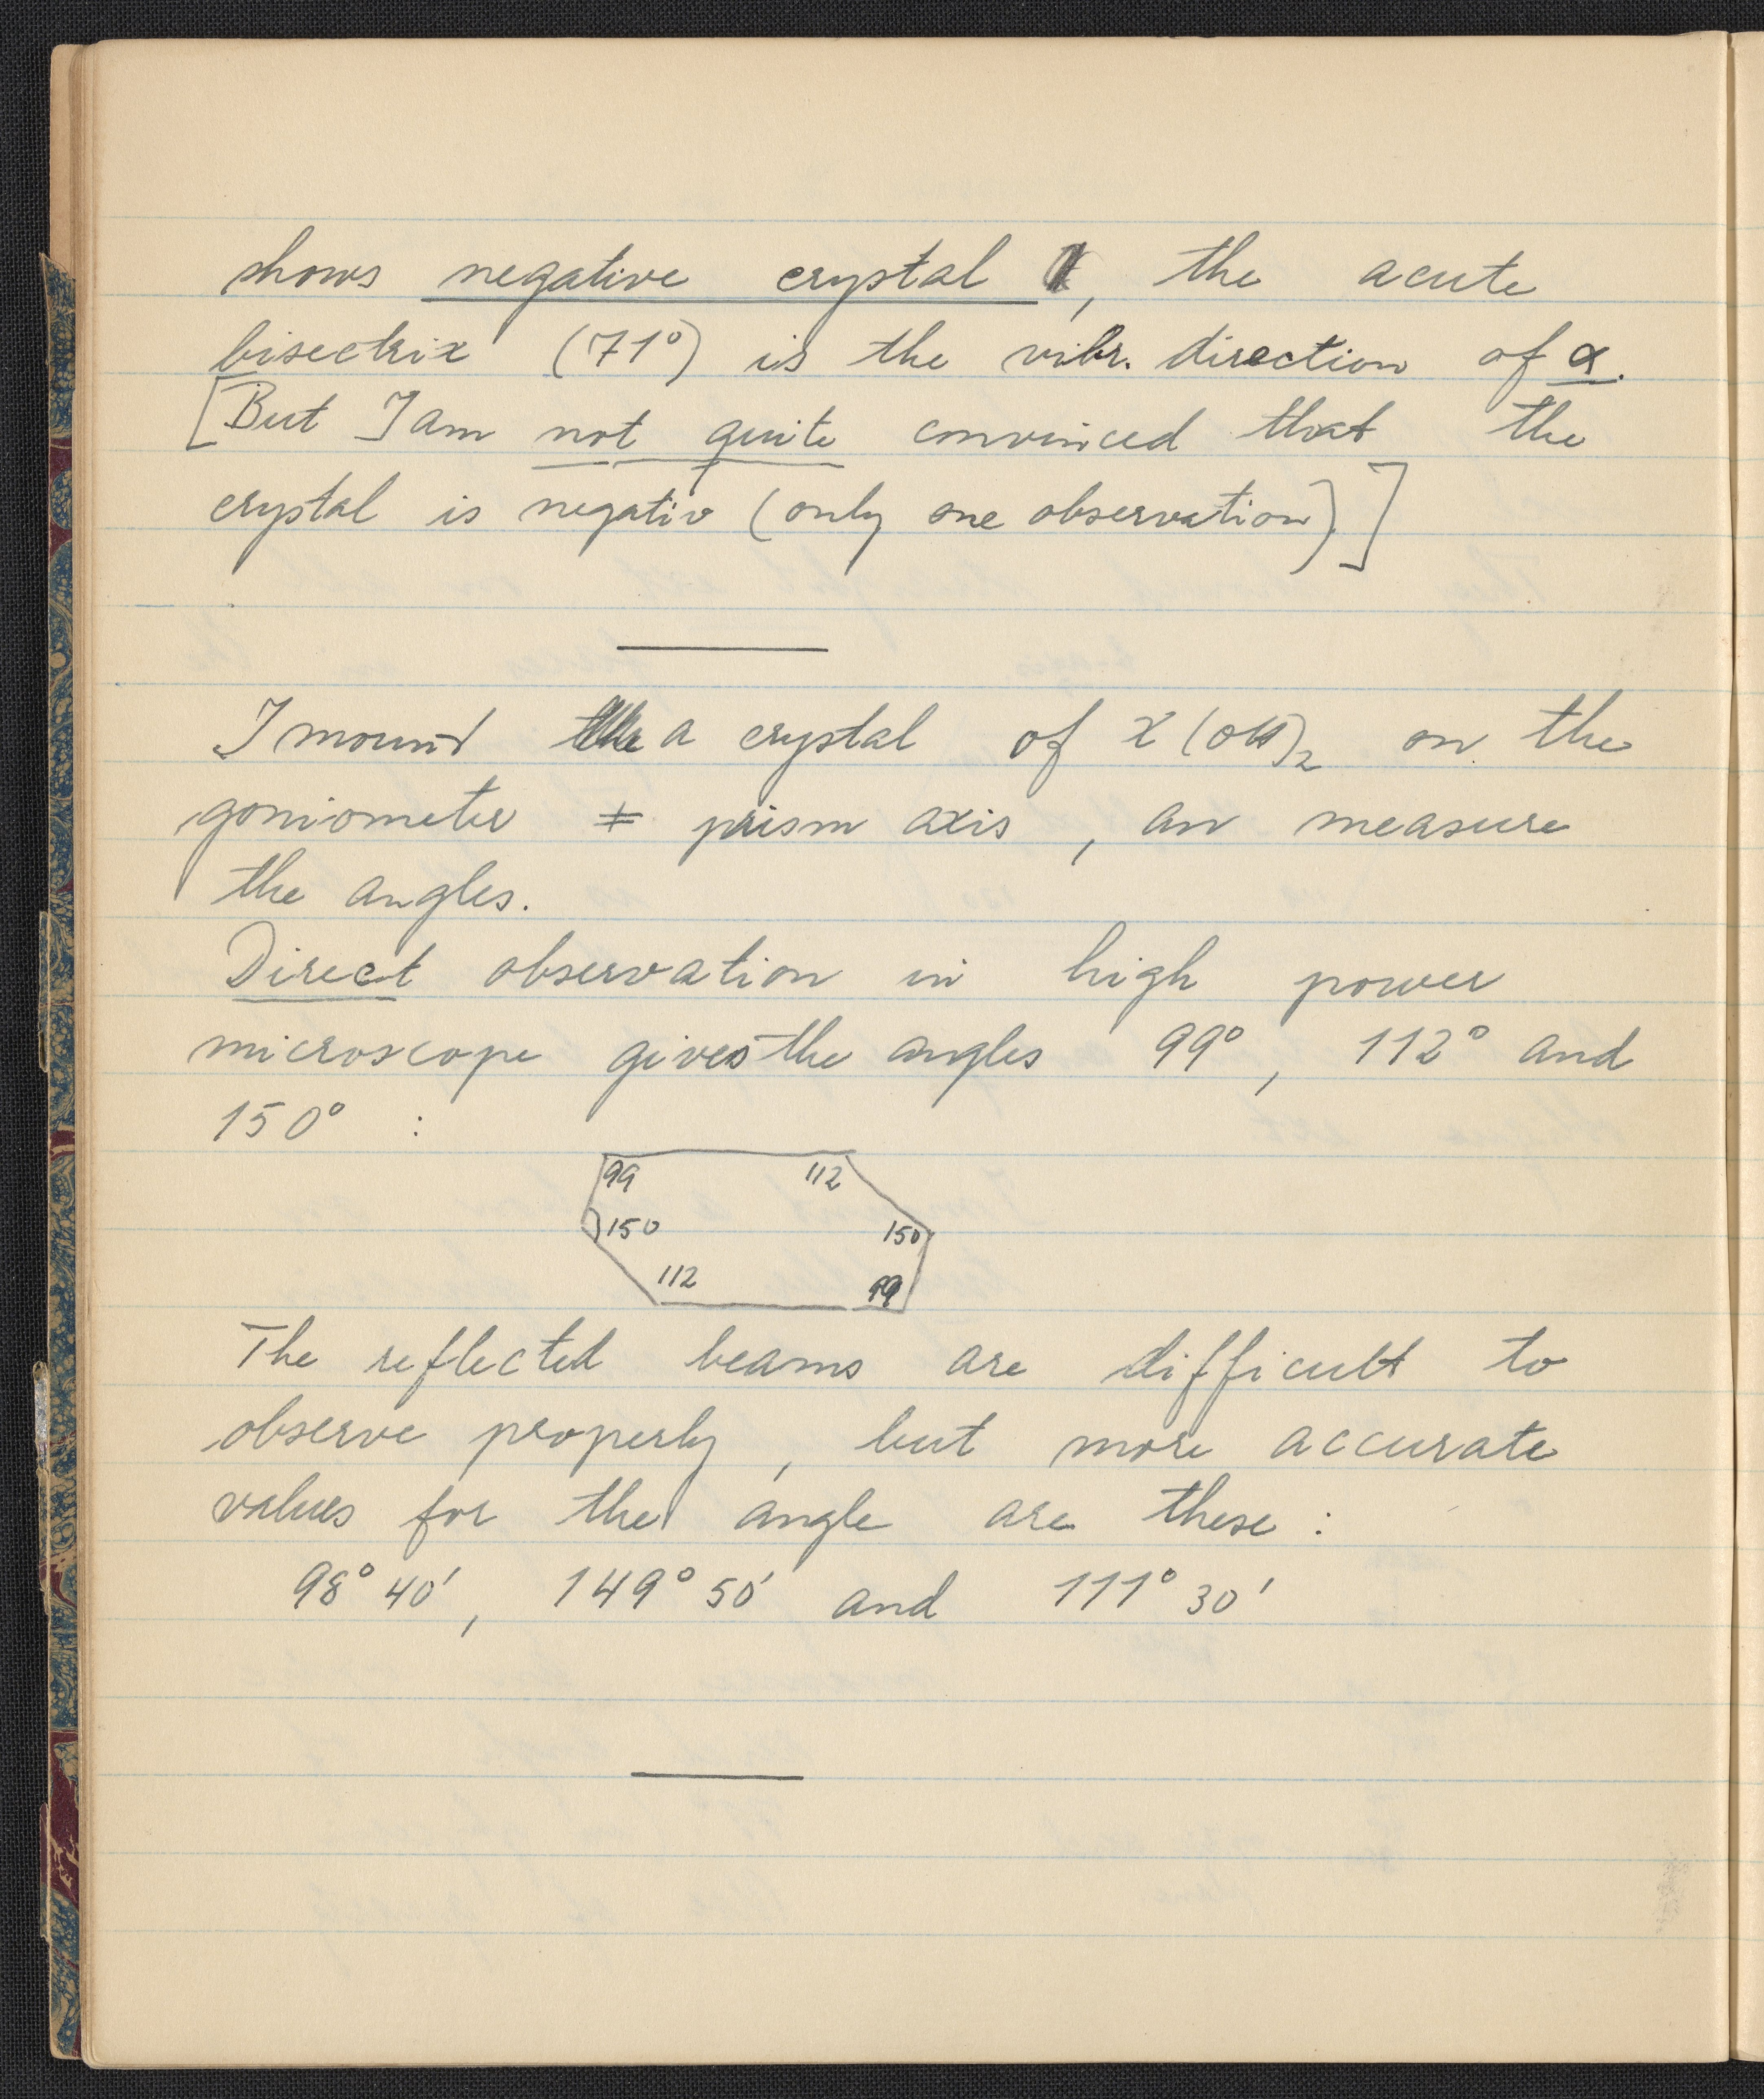 shows negative crystal , the acute
bisectrix (71°) is the vibr. direction of α.
[But I am not quite convinced that the
crystal is negativ (only one observation)]
I mount a crystal of X(OH)₂ on the
goniometer ≠ prism axis, an measure
the angles.
Direct observation in high power
microscope gives the angles 99°, 112° and
150° :
99 112
150 150
112 99
The reflected beams are difficult to
observe properly, but more accurate
values for the angle are these :
98° 40', 149° 50' and 111° 30'